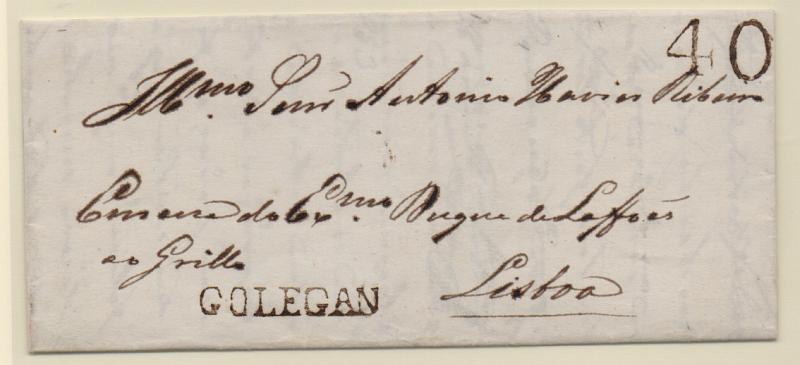 40
Illmo. Senr Antonio Xavier Ribeiro
Em casa do Exmo. Duque de Laffoẽs
ao Grillo
GOLEGAN
Lisboa